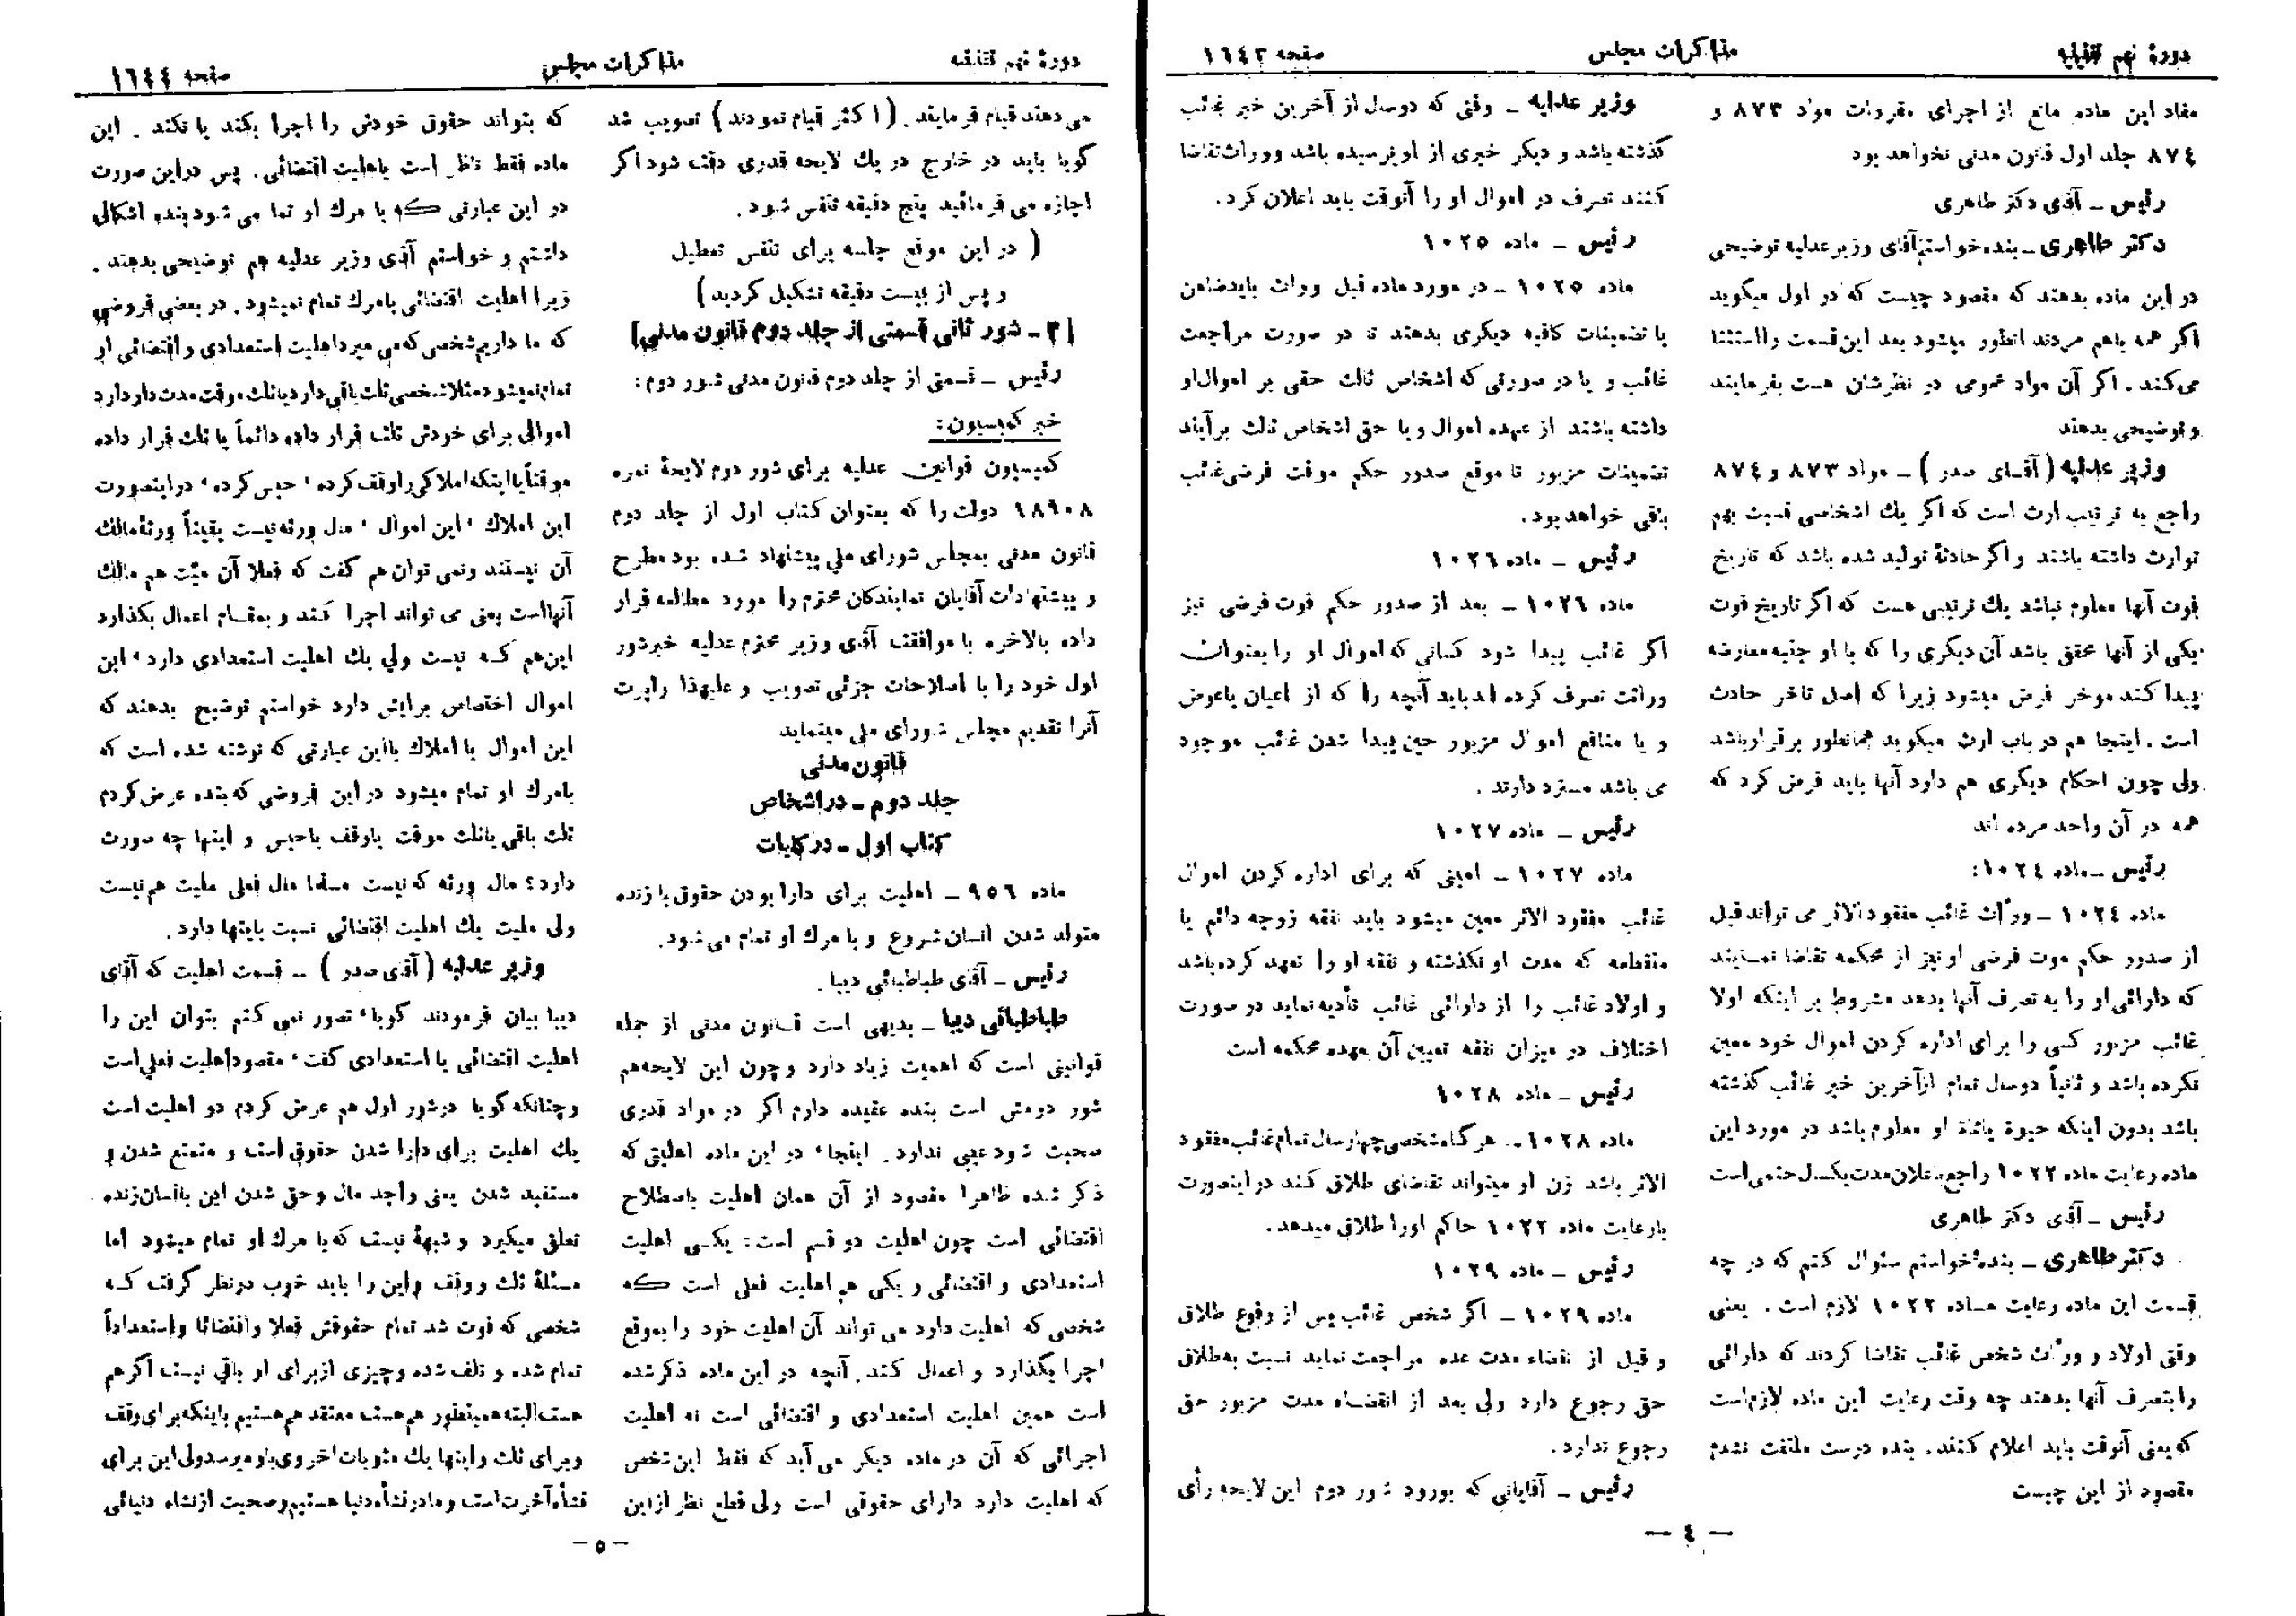 دورۀ نهم تقنینیه
مذاکرات مجلس
صفحه ۱٦٤۳
مفاد این ماده مانع از اجرای مقررات مواد ۸۷۳ و
۸۷٤ جلد اول قانون مدنی نخواهد بود
رئیس ـ آقای دکتر طاهری
دکتر طاهری ـ بنده خواستم آقای وزیر عدلیه توضیحی
در این ماده بدهند که مقصود چیست که در اول میگوید
اگر همه باهم مردند اینطور میشود بعد این قسمت را استثنا
می‌کند . اگر آن مواد عمومی در نظرشان هست بفرمایند
و توضیحی بدهند
وزیر عدلیه ( آقای صدر ) ـ مواد ۸۷۳ و ۸۷٤
راجع به ترتیب ارث است که اگر یك اشخاصی نسبت بهم
توارث داشته باشند و اگر حادثۀ تولید شده باشد که تاریخ
فوت آنها معلوم نباشد یك ترتیبی هست که اگر تاریخ فوت
یکی از آنها محقق باشد آن دیگری را که با او جنبه معارضه
پیدا کند موخر فرض میشود زیرا که اصل تاخر حادث
است . اینجا هم در باب ارث میگوید همانطور برقرار باشد
ولی چون احکام دیگری هم دارد آنها باید فرض کرد که
همه در آن واحد مرده اند
رئیس ـ ماده ۱۰۲٤ :
ماده ۱۰۲٤ ـ ورّاث غائب مفقود الاثر می تواند قبل
از صدور حکم موت فرضی او نیز از محکمه تقاضا نمایند
که دارائی او را به تصرف آنها بدهد مشروط بر اینکه اولا
غائب مزبور کسی را برای اداره کردن اموال خود معین
نکرده باشد و ثانیاً دو سال تمام از آخرین خبر غائب گذشته
باشد بدون اینکه حیوة یا فوت او معلوم باشد در مورد این
ماده رعایت ماده ۱۰۲۳ راجع باعلان مدت یکسال حتمی است
رئیس ـ آقای دکتر طاهری
دکتر طاهری ـ بنده خواستم سئوال کنم که در چه
قسمت این ماده رعایت ماده ۱۰۲۳ لازم است . یعنی
وقتی اولاد و ورّاث شخص غائب تقاضا کردند که دارائی
را بتصرف آنها بدهند چه وقت رعایت این ماده لازم است
که یعنی آنوقت باید اعلام کنند . بنده درست ملتفت نشدم
مقصود از این چیست
وزیر عدلیه ـ وقتی که دو سال از آخرین خبر غائب
گذشته باشد و دیگر خبری از او نرسیده باشد و وراث تقاضا
کنند تصرف در اموال او را آنوقت باید اعلان کرد .
رئیس ـ ماده ۱۰۲۵
ماده ۱۰۲۵ ـ در مورد ماده قبل وراث باید ضامن
یا تضمینات کافیه دیگری بدهند تا در صورت مراجعت
غائب و یا در صورتی که اشخاص ثالث حقی بر اموال او
داشته باشند از عهده اموال و یا حق اشخاص ثالث برآیند
تضمینات مزبور تا موقع صدور حکم موقت فرضی غائب
باقی خواهد بود .
رئیس ـ ماده ۱۰۲٦
ماده ۱۰۲٦ ـ بعد از صدور حکم فوت فرضی نیز
اگر غائب پیدا شود کسانی که اموال او را بعنوان
وراثت تصرف کرده اند باید آنچه را که از اعیان یا عوض
و یا منافع اموال مزبور حین پیدا شدن غائب موجود
می باشد مسترد دارند .
رئیس ـ ماده ۱۰۲۷
ماده ۱۰۲۷ ـ امینی که برای اداره کردن اموال
غائب مفقود الاثر معین میشود باید نفقه زوجه دائم یا
منقطعه که مدت او نگذشته و نفقه او را تعهد کرده باشد
و اولاد غائب را از دارائی غائب تأدیه نماید در صورت
اختلاف در میزان نفقه تعیین آن بعهده محکمه است
رئیس ـ ماده ۱۰۲۸
ماده ۱۰۲۸ ـ هرگاه شخصی چهار سال تمام غائب مفقود
الاثر باشد زن او میتواند تقاضای طلاق کند در اینصورت
با رعایت ماده ۱۰۲۳ حاکم او را طلاق میدهد .
رئیس ـ ماده ۱۰۲۹
ماده ۱۰۲۹ ـ اگر شخص غائب پس از وقوع طلاق
و قبل از انقضاء مدت عده مراجعت نماید نسبت به طلاق
حق رجوع دارد ولی بعد از انقضاء مدت مزبور حق
رجوع ندارد .
رئیس ـ آقایانی که بورود شور دوم این لایحه رأی
ـ ٤ ـ
دورۀ نهم تقنینیه
مذاکرات مجلس
صفحه ۱٦٤٤
می دهند قیام فرمایند . ( اکثر قیام نمودند ) تصویب شد
گویا باید در خارج در یك لایحه قدری دقت شود اگر
اجازه می فرمائید پنج دقیقه تنفس شود .
( در این موقع جلسه برای تنفس تعطیل
و پس از بیست دقیقه تشکیل گردید )
[ ۳ ـ شور ثانی قسمتی از جلد دوم قانون مدنی ]
رئیس ـ قسمتی از جلد دوم قانون مدنی شور دوم :
خبر کمیسیون :
کمیسیون قوانین عدلیه برای شور دوم لایحۀ نمره
۱۸٦۰۸ دولت را که بعنوان کتاب اول از جلد دوم
قانون مدنی بمجلس شورای ملی پیشنهاد شده بود مطرح
و پیشنهادات آقایان نمایندگان محترم را مورد مطالعه قرار
داده بالاخره با موافقت آقای وزیر محترم عدلیه خبر شور
اول خود را با اصلاحات جزئی تصویب و علیهذا راپرت
آنرا تقدیم مجلس شورای ملی مینماید
قانون مدنی
جلد دوم ـ در اشخاص
کتاب اول ـ در کلیات
ماده ۹۵٦ ـ اهلیت برای دارا بودن حقوق با زنده
متولد شدن انسان شروع و با مرك او تمام می شود .
رئیس ـ آقای طباطبائی دیبا .
طباطبائی دیبا ـ بدیهی است قانون مدنی از جمله
قوانینی است که اهمیت زیاد دارد و چون این لایحه هم
شور دومش است بنده عقیده دارم اگر در مواد قدری
صحبت شود عیبی ندارد . اینجا ، در این ماده اهلیتی که
ذکر شده ظاهرا مقصود از آن همان اهلیت باصطلاح
اقتضائی است چون اهلیت دو قسم است : یکی اهلیت
استعدادی و اقتضائی و یکی هم اهلیت فعلی است که
شخصی که اهلیت دارد می تواند آن اهلیت خود را بموقع
اجرا بگذارد و اعمال کند . آنچه در این ماده ذکر شده
است همین اهلیت استعدادی و اقتضائی است نه اهلیت
اجرائی که آن در ماده دیگر می آید که فقط این شخص
که اهلیت دارد دارای حقوقی است ولی قطع نظر از این
که بتواند حقوق خودش را اجرا بکند یا نکند . این
ماده فقط ناظر است باهلیت اقتضائی . پس در این صورت
در این عبارتی که با مرك او تمام می شود بنده اشکالی
داشتم و خواستم آقای وزیر عدلیه هم توضیحی بدهند .
زیرا اهلیت اقتضائی بامرك تمام نمیشود . در بعضی فروضی
که ما داریم شخصی که می میرد اهلیت استعدادی و اقتضائی او
تمام نمیشود مثلا شخصی ثلث باقی دارد یا ثلث موقت مدت دار دارد
اموالی برای خودش ثلث قرار داده دائماً یا ثلث قرار داده
موقتاً یا اینکه املاکی را وقف کرده ، حبس کرده ، در اینصورت
این املاك ، این اموال ، مال ورثه نیست یقیناً ورثه مالك
آن نیستند و نمی توان هم گفت که فعلا آن میّت هم مالك
آنها است یعنی می تواند اجرا کند و بمقام اعمال بگذارد
این هم که نیست ولی یك اهلیت استعدادی دارد ، این
اموال اختصاص برایش دارد خواستم توضیح بدهند که
این اموال یا املاك با این عبارتی که نوشته شده است که
بامرك او تمام میشود در این فروضی که بنده عرض کردم
ثلث باقی یا ثلث موقت یا وقف یا حبس و اینها چه صورت
دارد ؛ مال ورثه که نیست مسلما مال فعلی میت هم نیست
ولی میت یك اهلیت اقتضائی نسبت باینها دارد .
وزیر عدلیه ( آقای صدر ) ـ قسمت اهلیت که آقای
دیبا بیان فرمودند گویا ، تصور نمی کنم بتوان این را
اهلیت اقتضائی یا استعدادی گفت ، مقصود اهلیت فعلی است
و چنانکه گویا در شور اول هم عرض کردم دو اهلیت است
یك اهلیت برای دارا شدن حقوق است و متمتع شدن و
مستفید شدن یعنی واجد مال و حق شدن این با انسان زنده
تعلق میگیرد و شبهۀ نیست که با مرك او تمام میشود اما
مسئلۀ ثلث و وقف و این را باید خوب در نظر گرفت که
شخصی که فوت شد تمام حقوقش فعلا و اقتضائا و استعداداً
تمام شده و تلف شده و چیزی از برای او باقی نیست اگر هم
هست البته همینطور هم هست معتقد هم هستیم باینکه برای وقف
و برای ثلث و اینها یك مثوبات اخروی باو میرسد ولی این برای
نشأه آخرت است و ما در نشأه دنیا هستیم و صحبت از نشاه دنیائی
ـ ٥ ـ